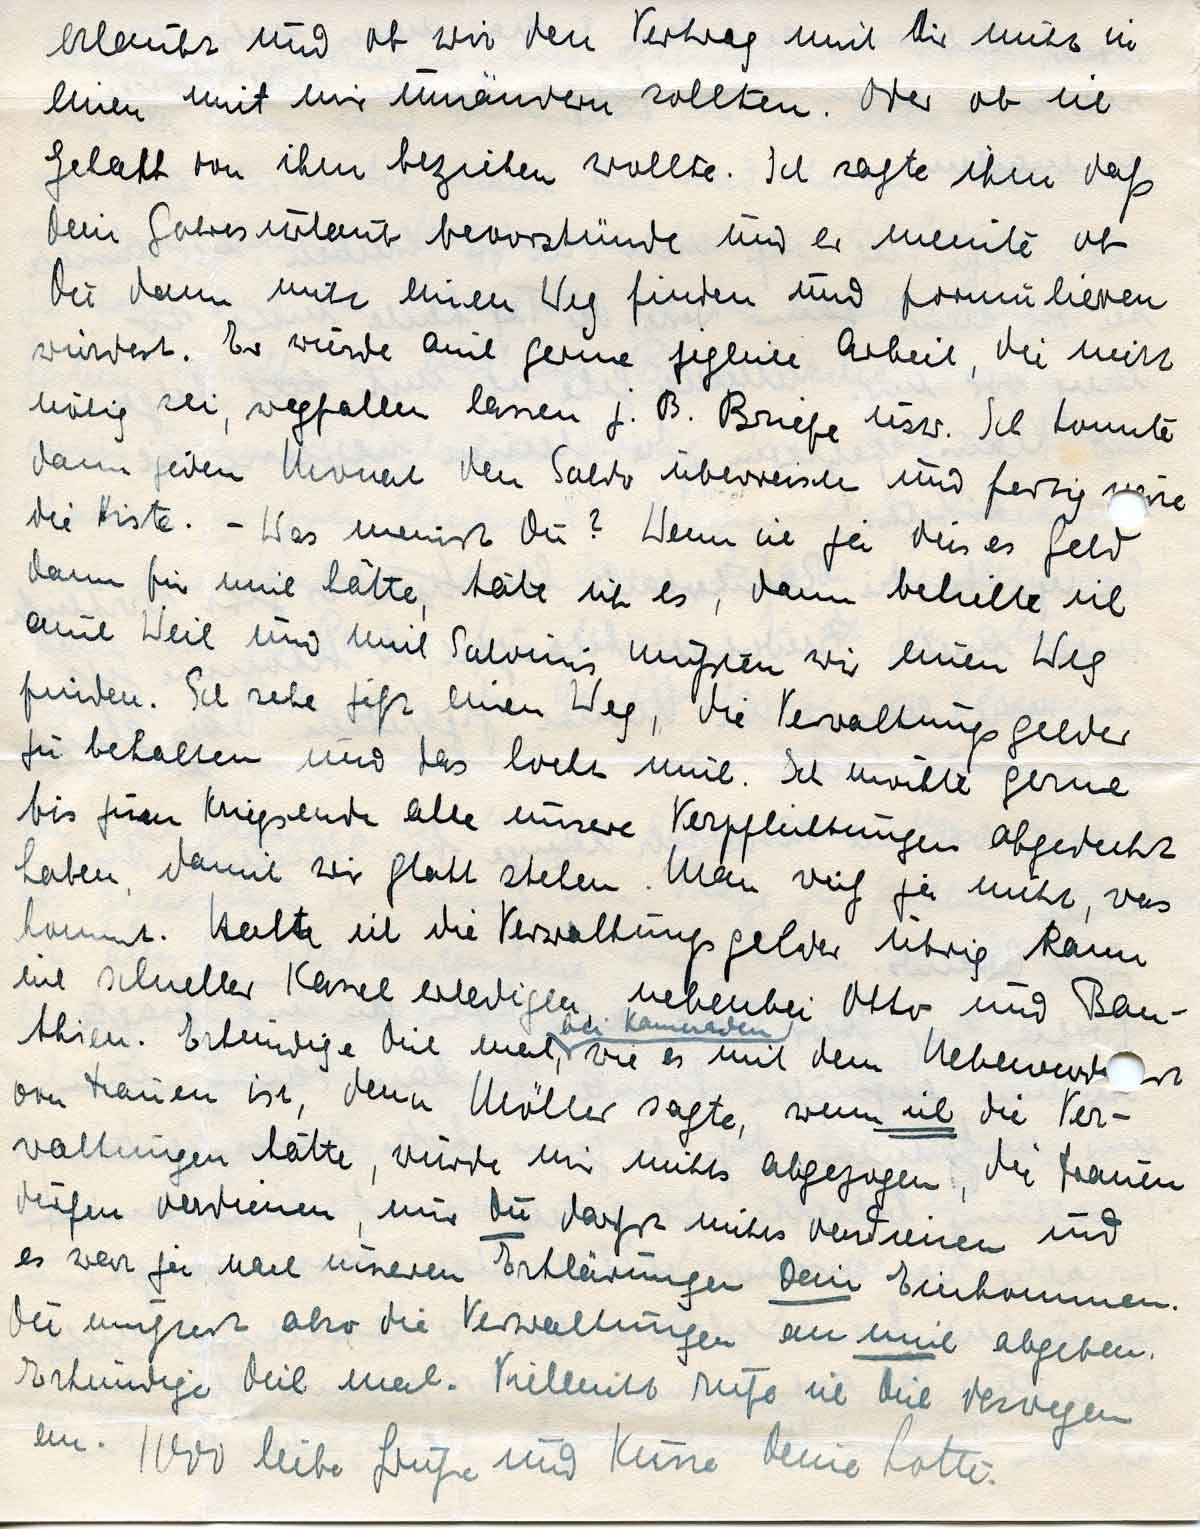 erlaubt und ob wir den Vertrag mit Dir nicht in
einen mit mir umändern sollten. Oder ob ich
Gehalt von ihm beziehen wollte. Ich sagte ihm daß
Dein Jahresurlaub bevorstünde und er meinte ob
Du dann nicht einen Weg finden und formulieren
würdest. Er würde auch gerne jegliche Arbeit, die nicht
nötig sei, wegfallen lassen z. B. Briefe usw. Ich könnte
dann jeden Monat den Saldo überweisen und fertig wäre
die Kiste. – Was meinst Du? Wenn ich ja dieses Geld
dann für mich hätte, täte ich es, dann behielte ich
auch Weil und mit Salvinis müssten wir einen Weg
finden. Ich sehe jetzt einen Weg, die Verwaltungsgelder
zu behalten und das lockt mich. Ich möchte gerne
bis zum Kriegsende alle unsere Verpflichtungen abgedeckt
haben, damit wir glatt stehen. Man weiß ja nicht, was
kommt. Hätte ich die Verwaltungsgelder übrig kann
ich schneller Kassel erledigen, nebenbei Otto und Bau-
thien. Erkundige Dich mal, bei Kameraden wie es mit dem Nebenverdienst
von Frauen ist, denn Möller sagte, wenn ich die Ver-
waltungen hätte, würde mir nichts abgezogen, die Frauen
dürfen verdienen, nur Du darfst nichts verdienen und
es war ja nach unseren Erklärungen Dein Einkommen.
Du müsstest also die Verwaltungen an mich abgeben.
Erkundige Dich mal. Vielleicht rufe ich Dich deswegen
an. 1000 liebe Grüße und Küsse Deine Lotte.